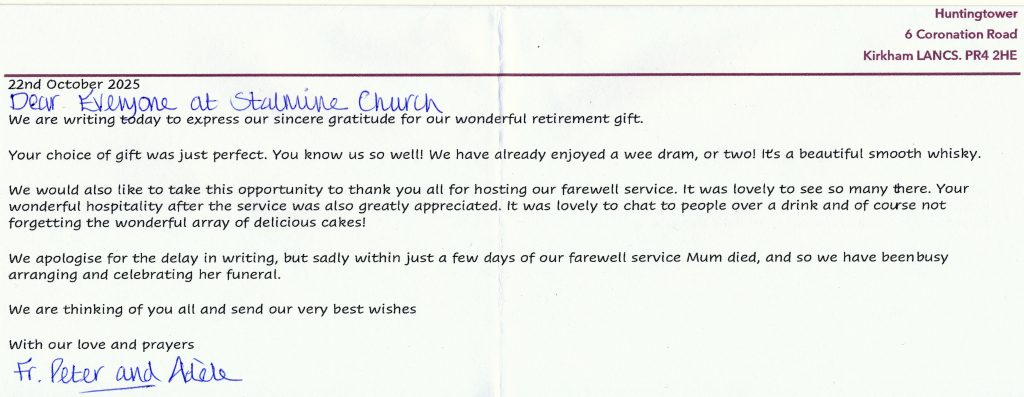 Huntingtower
6 Coronation Road
Kirkham LANCS. PR4 2HE
22nd October 2025
Dear Everyone at Stalmine Church
We are writing today to express our sincere gratitude for our wonderful retirement gift.
Your choice of gift was just perfect. You know us so well! We have already enjoyed a wee dram, or two! It's a beautiful smooth whisky.
We would also like to take this opportunity to thank you all for hosting our farewell service. It was lovely to see so many there. Your
wonderful hospitality after the service was also greatly appreciated. It was lovely to chat to people over a drink and of course not
forgetting the wonderful array of delicious cakes!
We apologise for the delay in writing, but sadly within just a few days of our farewell service Mum died, and so we have been busy
arranging and celebrating her funeral.
We are thinking of you all and send our very best wishes
With our love and prayers
Fr. Peter and Adèle